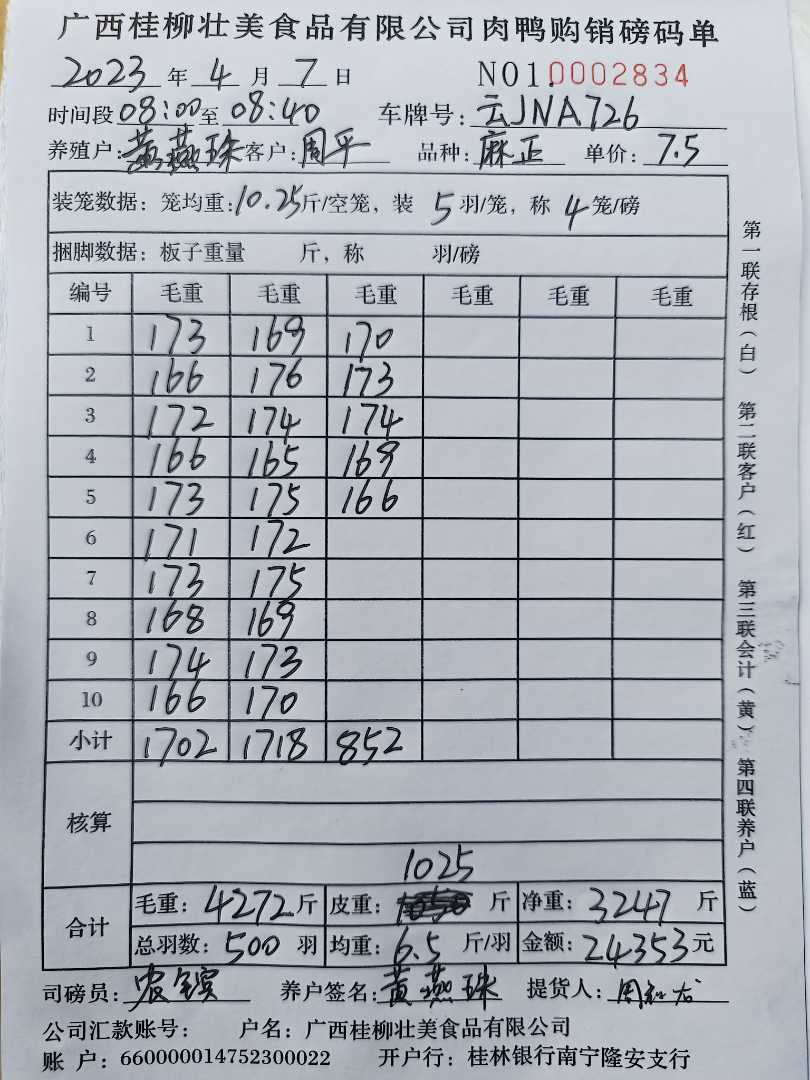 广西桂柳壮美食品有限公司肉鸭购销磅码单
2023 年 4 月 7 日 NO1.0002834
时间段 08:00 至 08:40 车牌号: 云JNA726
养殖户: 黄燕珠 客户: 周平 品种: 麻正 单价: 7.5
装笼数据: 笼均重: 10.25 斤/空笼, 装 5 羽/笼, 称 4 笼/磅
捆脚数据: 板子重量 斤, 称 羽/磅
编号 毛重 毛重 毛重 毛重 毛重 毛重
1 173 169 170
2 166 176 173
3 172 174 174
4 166 165 169
5 173 175 166
6 171 172
7 173 175
8 168 169
9 174 173
10 166 170
小计 1702 1718 852
核算
1025
合计 毛重: 4272 斤 皮重: 斤 净重: 3247 斤
总羽数: 500 羽 均重: 6.5 斤/羽 金额: 24353 元
司磅员: 养户签名: 黄燕珠 提货人:
公司汇款账号: 户名: 广西桂柳壮美食品有限公司
账 户: 660000014752300022 开户行: 桂林银行南宁隆安支行
第一联存根(白) 第二联客户(红) 第三联会计(黄) 第四联养户(蓝)